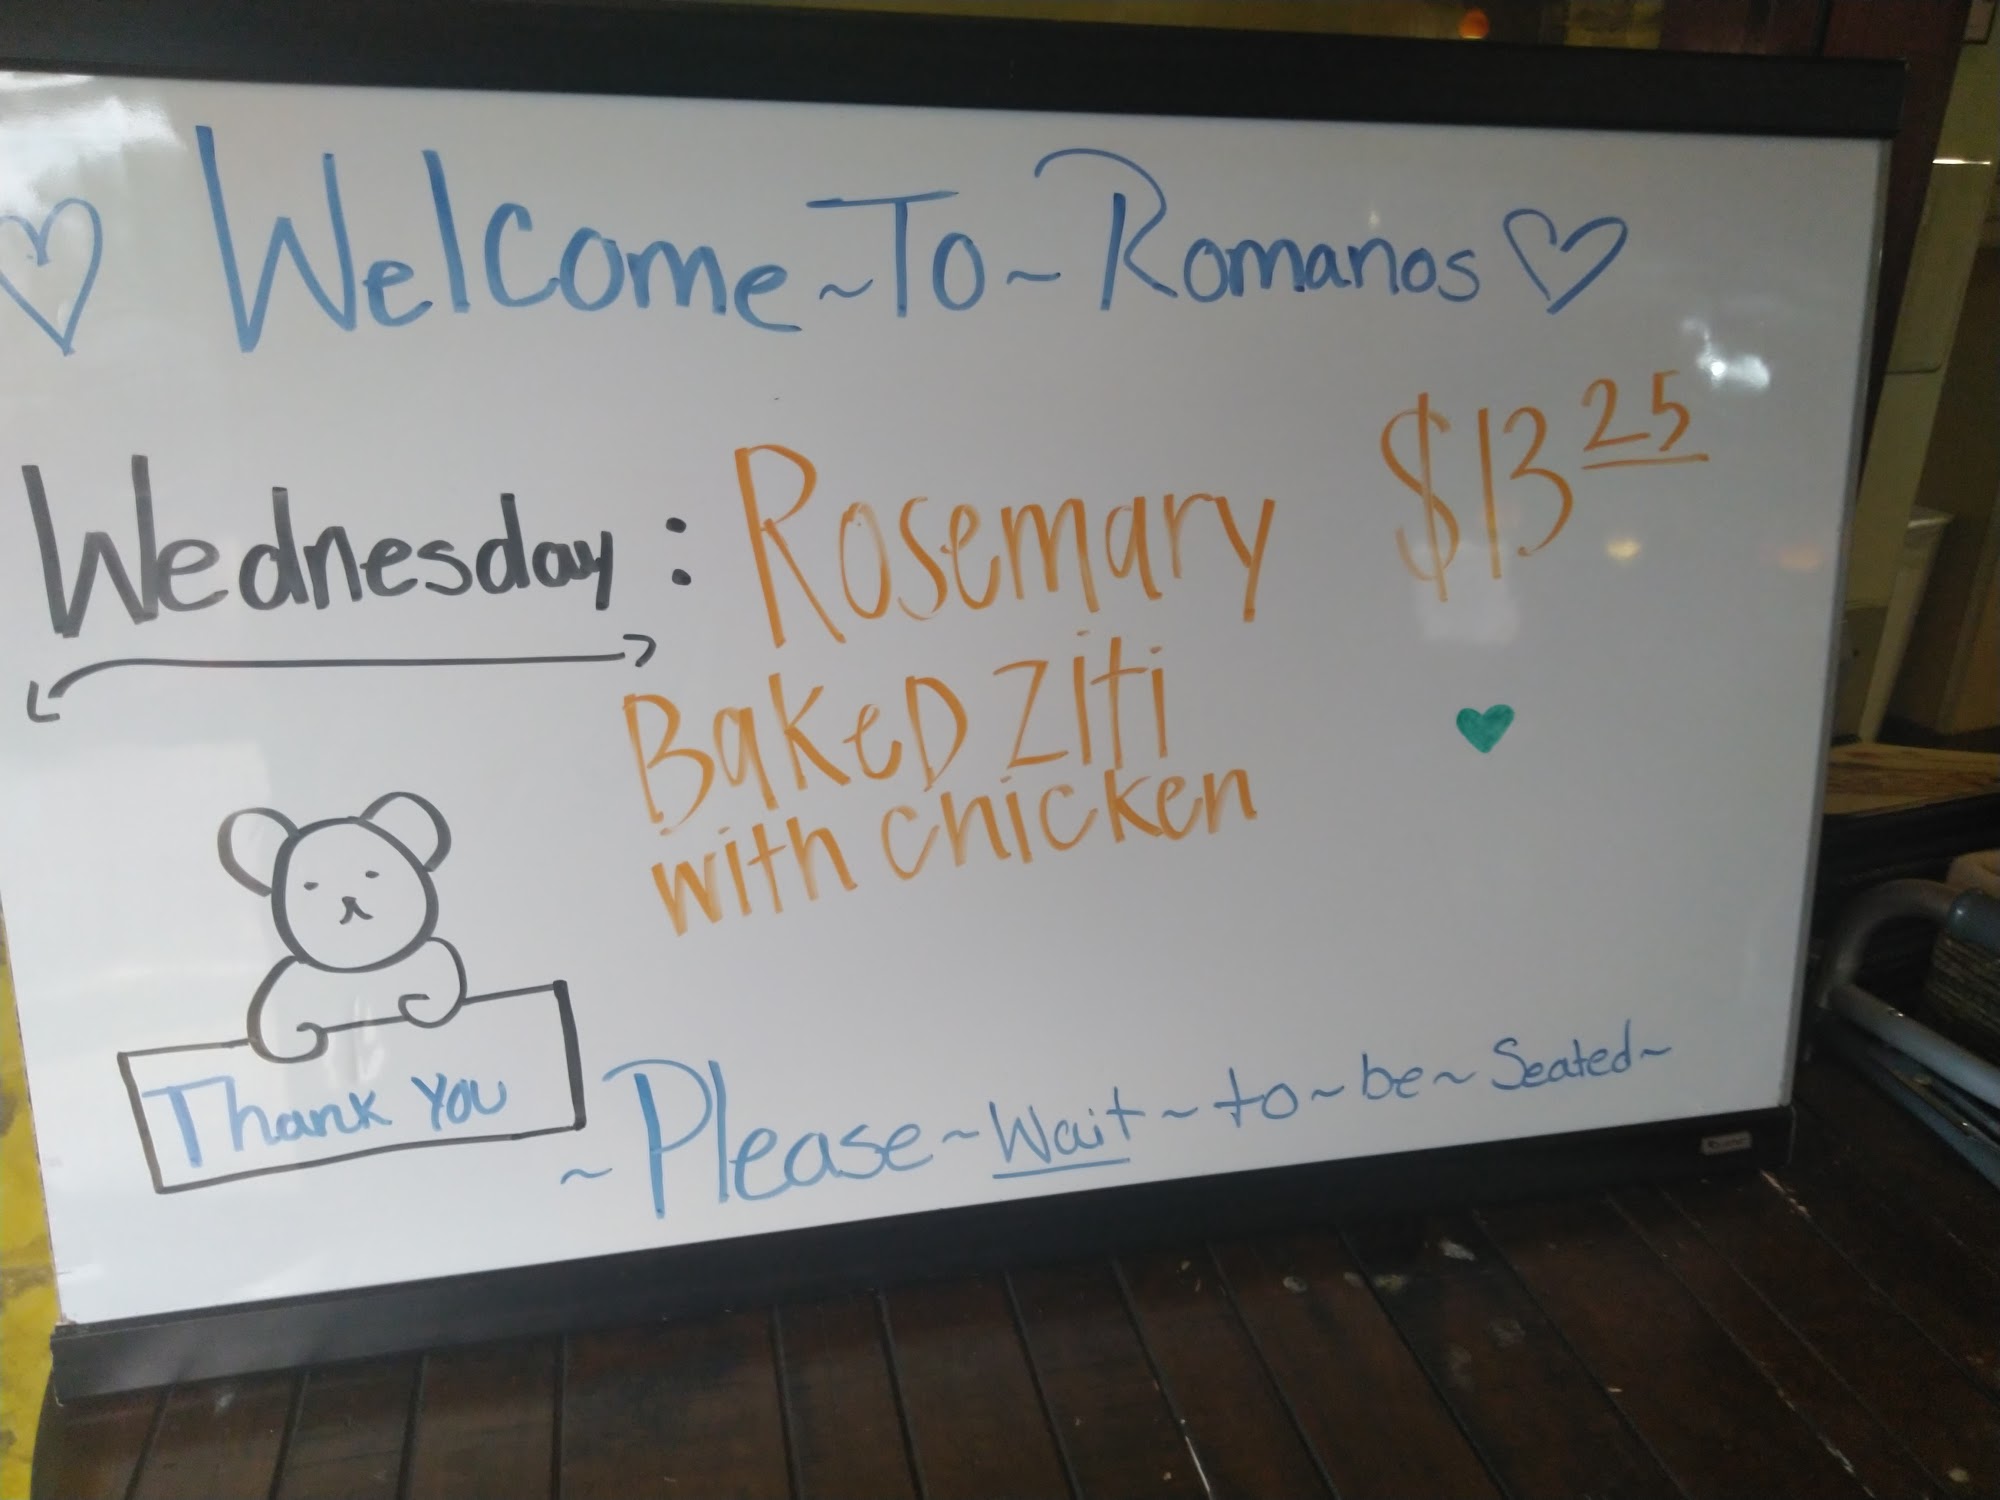 Welcome~To~Romanos
Wednesday: Rosemary $13 25
Baked Ziti
with chicken
Thank You
~Please~Wait~to~be~Seated~